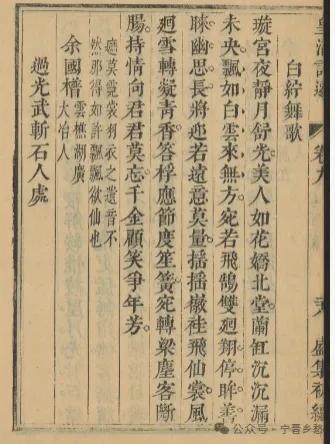 皇清詩選 卷九 盛集初編
白紵舞歌
璇宮夜靜月舒光美人如花嬌北堂蘭缸沉沉漏
未央飄如白雲來無方宛若飛鵠雙廻翔停眸善
睞幽思長將迎若遠意莫量搖搖袿飛仙裳風
廻雪轉凝青香答桴應節度笙簧宛轉梁塵客斷
腸持情向君君莫忘千金顧笑爭年芳
莫霓裳羽衣之遺音不
然那得如許飄飄欲仙也
余國櫧 雲樵湖廣
大冶人
過光武斬石人處
公众号·宁晋乡愁